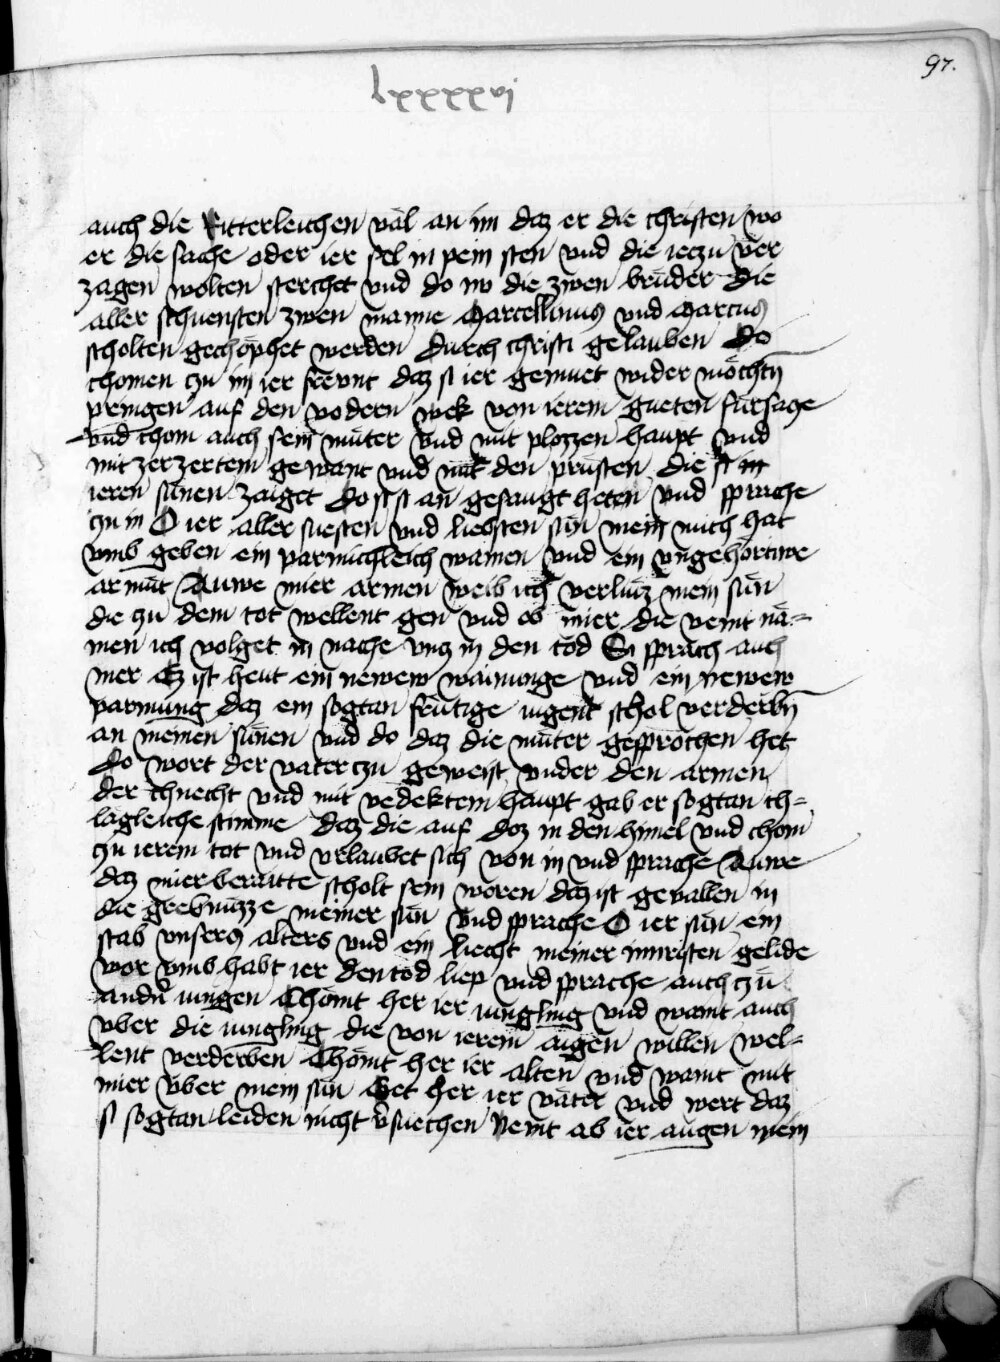 97.
lxxxxvi
auch die Ritterleichen väl an im daz er die christen wo
er die sache oder ier sel in pein sten vnd die ieczu ver
zagen wolten sterchet vnd do nv die zwen brüder die
aller schuensten zwen manne Marcellinus vnd Marcus
scholten gechöphet werden durch christi gelauben Do
chomen czu im ier frewnt daz si ier gemuet wider möchtn
pringen auf den vodern wek von ierem gueten fürsacze
vnd chom auch sein müter vnd mit plozzen haupt vnd
mit zerzertem gewant vnd nakt den prüsten die si in
ieren sünen zaiget do si si an gesaugt heten vnd sprache
czu in O ier aller suesten vnd liebsten sün mein mich hat
vmb geben ein parmichleich wainen vnd ein vngehörtwe
armüt Auwe mier armen weib ich verluz mein sün
die zu dem tot wellent gen vnd ob mier die veint nä=
men ich volget in nache vncz in den tod Si sprach auch
mer Ez ist heut ein newew wainunge vnd ein newew
parmung daz ein sogtan frutige iugent schol verderbn
an meinen sünen vnd do daz die müter gesprochen het
do wort der vater czu geweist vnder den armen
der chnecht vnd mit vedektem haupt gab er sogtan ch=
lägleiche stimme daz die auf doz in den himel vnd chom
czu ierem tot vnd vrlaubet sich von in vnd sprache Auwe
daz mier beraitte scholt sein woren daz ist gevallen in
die grebnüzze meiner sün vnd sprache O ier sün ein
stab vnsers alters vnd ein liecht meiner innristen gelide
wor vmb habt ier den tod liep vnd sprache auch czu
andern iungen Chömt her ier iungling vnd waint auch
vber die iungling die von ierem aigen willen wel=
lent verderben Chömt her ier alten vnd waint mit
mier über mein sün Get her ier väter vnd wert daz
si sogtan leiden nicht versuechen Nemt ab ier augen mein